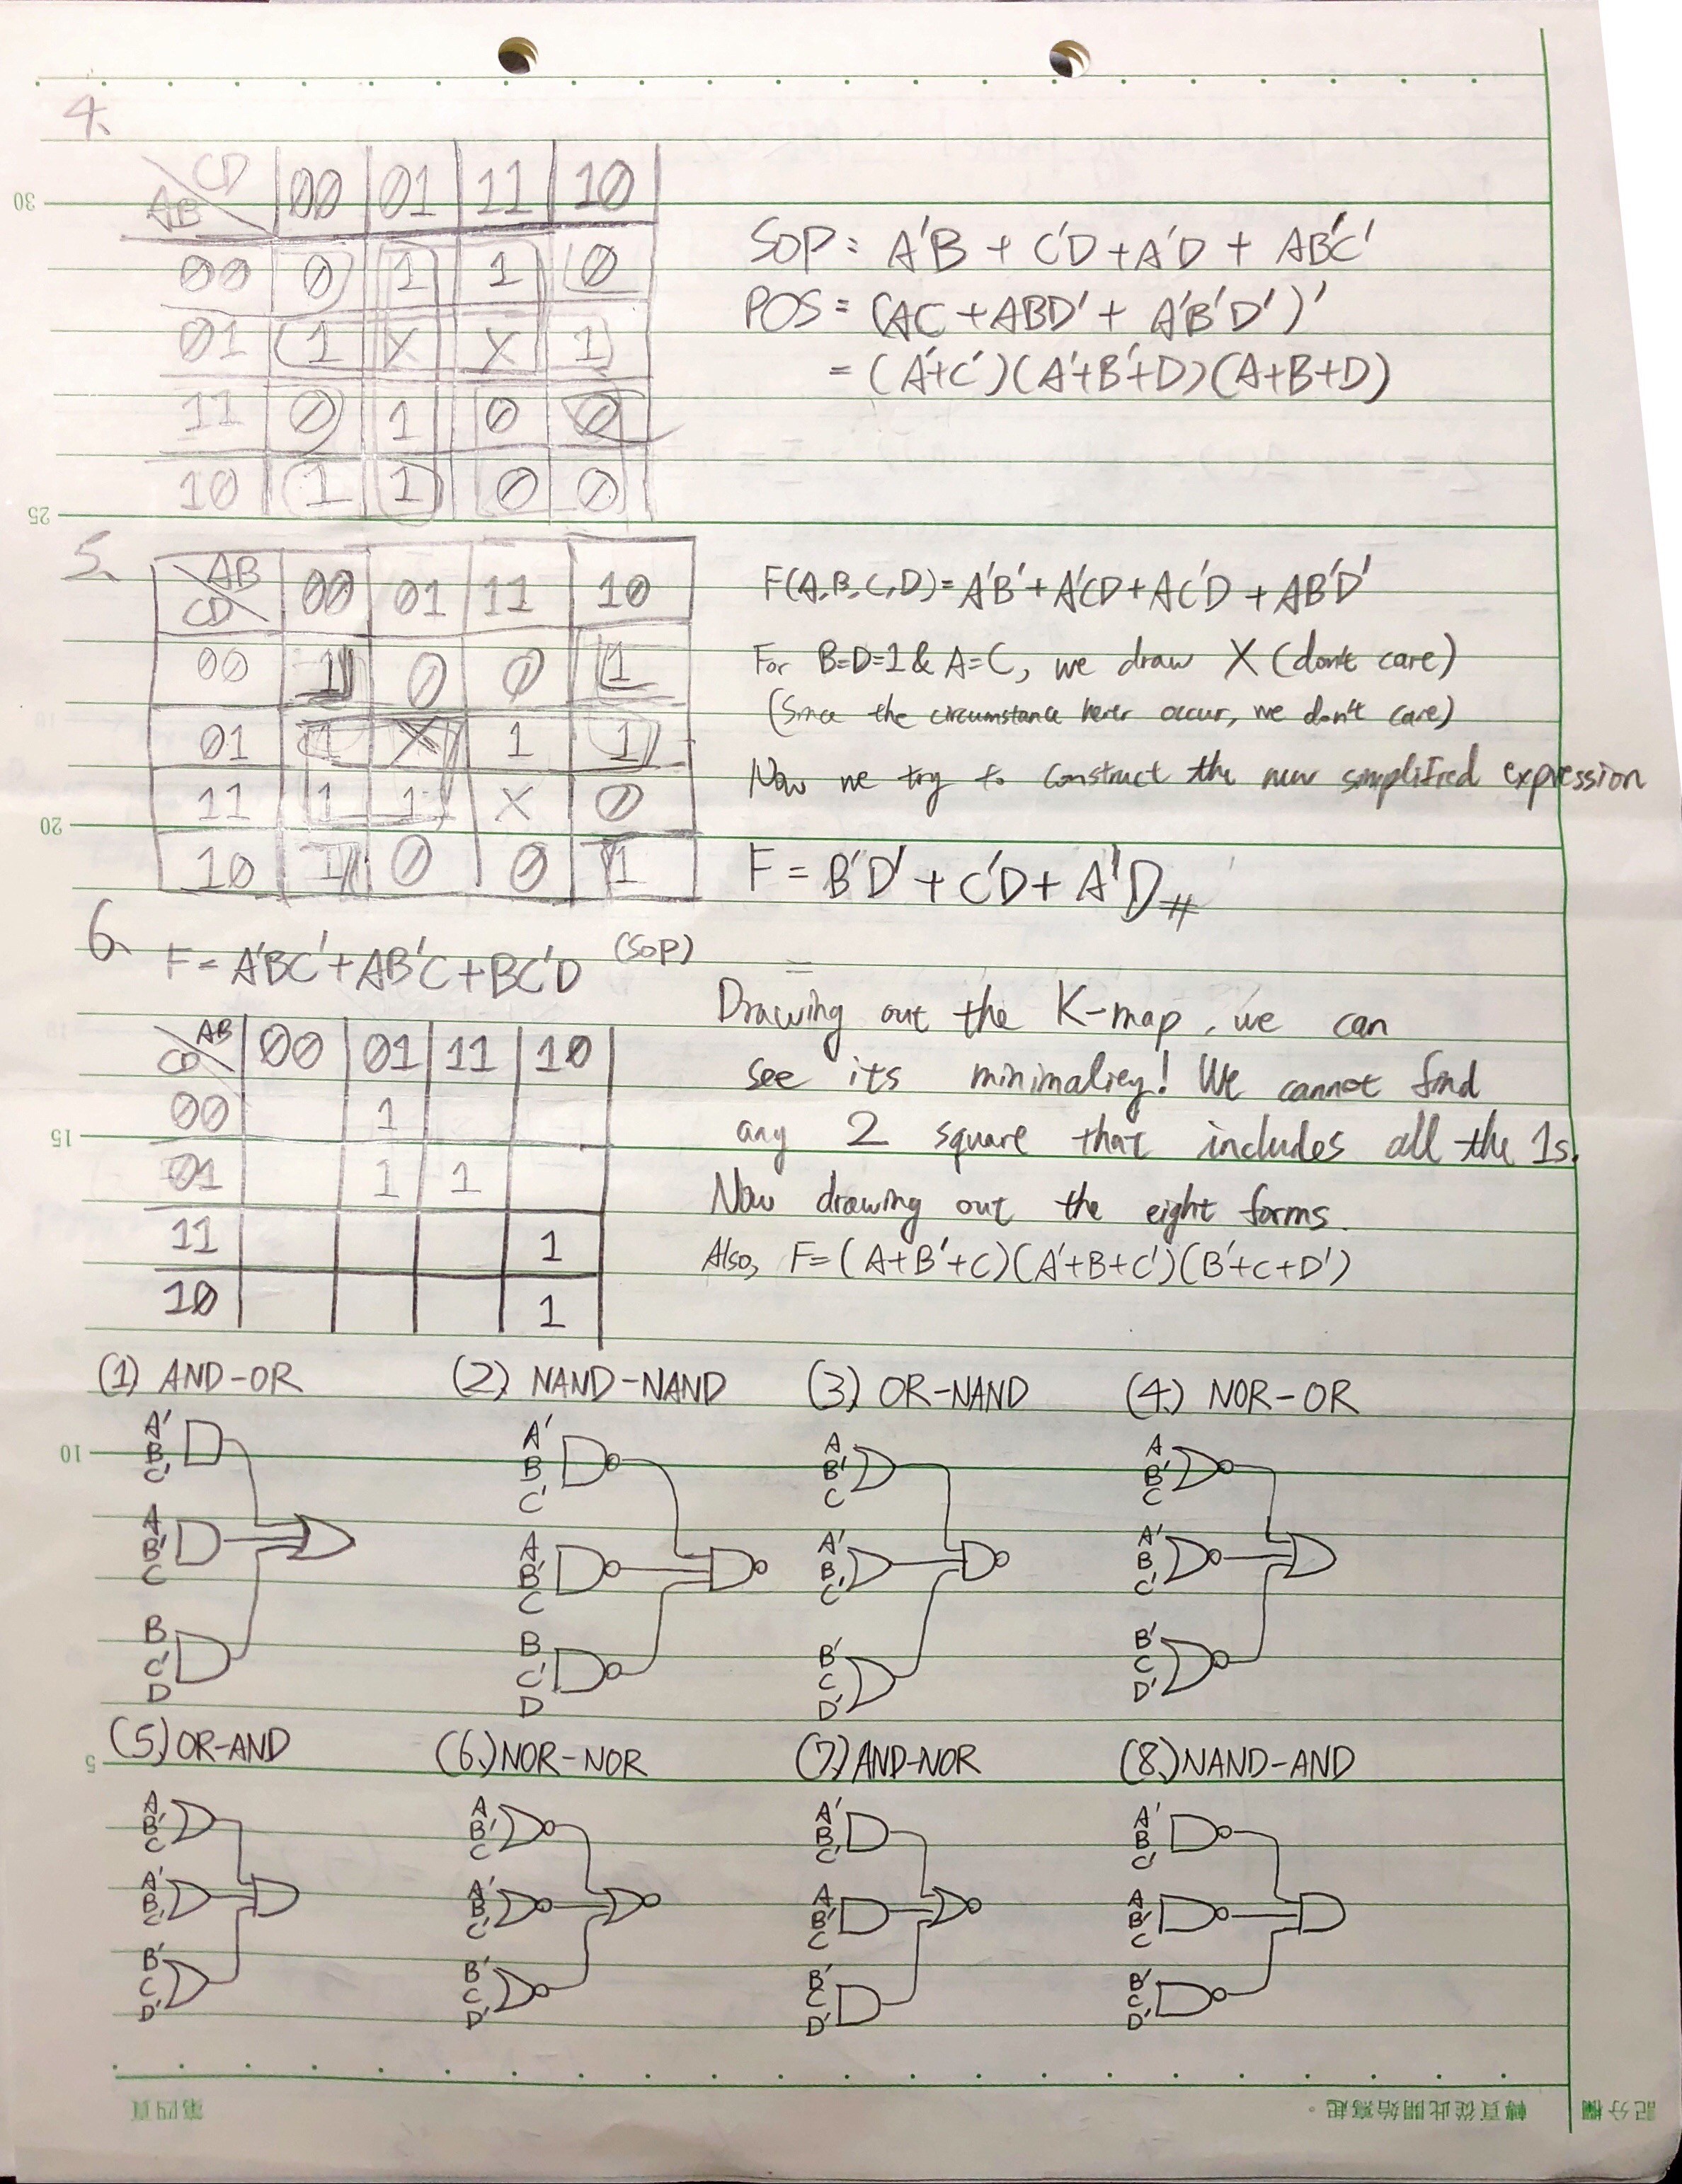 4.
CD 00 01 11 10
AB
00 0 1 1 0
01 1 X X 1
11 0 1 0 0
10 1 1 0 0
SOP: A'B + C'D + A'D + AB'C'
POS = (AC + ABD' + A'B'D')'
= (A'+C')(A'+B'+D)(A+B+D)
5.
AB 00 01 11 10
CD
00 1 0 0 1
01 1 X 1 1
11 1 1 X 0
10 1 0 0 1
F(A,B,C,D)= A'B' + A'CD + AC'D + AB'D'
For B=D=1 & A=C, we draw X (don't care)
(Since the circumstance never occur, we don't care)
Now we try to construct the new simplified expression
F = B'D' + C'D + A'D #
6.
F = A'BC' + AB'C + BC'D (SOP)
AB 00 01 11 10
CD
00 1
01 1 1
11 1
10 1
Drawing out the K-map, we can
see its minimaliey! We cannot find
any 2 square that includes all the 1s.
Now drawing out the eight forms.
Also, F = (A+B'+C)(A'+B+C')(B'+C+D')
(1) AND-OR (2) NAND-NAND (3) OR-NAND (4) NOR-OR
A' A' A A
B B B' B'
C' C' C C
A A A' A'
B' B' B B
C C C' C'
B B B' B'
C' C' C C
D D D' D'
(5) OR-AND (6) NOR-NOR (7) AND-NOR (8) NAND-AND
A A A' A'
B' B' B B
C C C' C'
A' A' A A
B B B' B'
C' C' C C
B' B' B' B'
C C C C
D' D' D' D'
30
25
20
15
10
5
第四頁
轉頁從此開始寫起。
記分欄